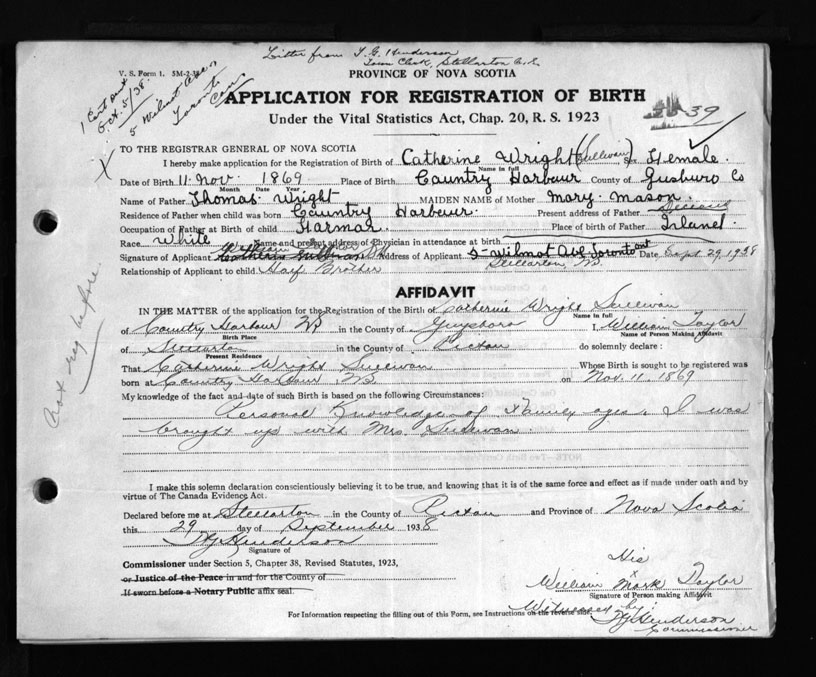 Letter from T. G. Henderson
Town Clerk, Stellarton N.S.
V. S. Form 1. 5M-2-38
PROVINCE OF NOVA SCOTIA
1 Cert out
Oct. 5/38.
5 Wilmot Ave,
Toronto
Can
APPLICATION FOR REGISTRATION OF BIRTH
39
Under the Vital Statistics Act, Chap. 20, R. S. 1923
X TO THE REGISTRAR GENERAL OF NOVA SCOTIA
I hereby make application for the Registration of Birth of Catherine Wright (Sullivan) Sex Female.
Name in full
Date of Birth 11 Nov. 1869 Place of Birth Country Harbour County of Gusburo Co
Month Date Year
Name of Father Thomas Wright MAIDEN NAME of Mother Mary Mason.
Residence of Father when child was born Country Harbour. Present address of Father
Occupation of Father at Birth of child Farmar. Place of birth of Father
Race White Name and present address of Physician in attendance at birth
Signature of Applicant Address of Applicant 5-Wilmot Ave Toronto ont Date Sept 29, 1938
Relationship of Applicant to child Half Brother Stellarton, NS.
AFFIDAVIT
IN THE MATTER of the application for the Registration of the Birth of Catherine Wright Sullivan
Name in full
of Country Harbour NS in the County of Guysboro I, William Taylor
Birth Place Name of Person Making Affidavit
of Stellarton in the County of Pictou do solemnly declare :
Present Residence
That Catherine Wright Sullivan Whose Birth is sought to be registered was
born at Country Harbour NS. on Nov. 11, 1869
Not reg before
My knowledge of the fact and date of such Birth is Based on the following Circumstances:
Personal Knowledge of Family ages, I was
brought up with Mrs. Sullivan.
I make this solemn declaration conscientiously believing it to be true, and knowing that it is of the same force and effect as if made under oath and by
virtue of The Canada Evidence Act.
Declared before me at Stellarton in the County of Pictou and Province of Nova Scotia
this 29 day of September 1938
T G Henderson
Signature of
Commissioner under Section 5, Chapter 38, Revised Statutes, 1923,
or Justice of the Peace in and for the County of
If sworn before a Notary Public affix seal.
His
William X Mark Taylor
Signature of Person making Affidavit
For Information respecting the filling out of this Form, see Instructions on the reverse side.
Witnessed by:
T G Henderson
Commissioner